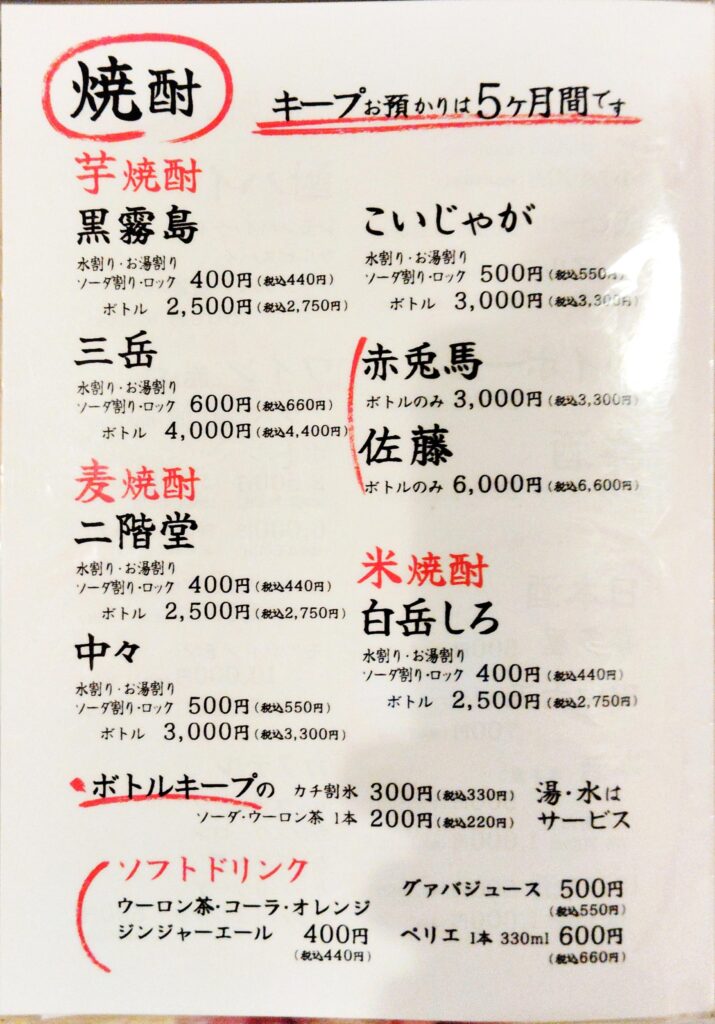 焼酎
キープお預かりは5ヶ月間です
芋焼酎
黒霧島
水割り・お湯割り
ソーダ割り・ロック 400円(税込440円)
ボトル 2,500円(税込2,750円)
三岳
水割り・お湯割り
ソーダ割り・ロック 600円(税込660円)
ボトル 4,000円(税込4,400円)
こいじゃが
水割り・お湯割り
ソーダ割り・ロック 500円(税込550円)
ボトル 3,000円(税込3,300円)
赤兎馬
ボトルのみ 3,000円(税込3,300円)
佐藤
ボトルのみ 6,000円(税込6,600円)
麦焼酎
二階堂
水割り・お湯割り
ソーダ割り・ロック 400円(税込440円)
ボトル 2,500円(税込2,750円)
中々
水割り・お湯割り
ソーダ割り・ロック 500円(税込550円)
ボトル 3,000円(税込3,300円)
米焼酎
白岳しろ
水割り・お湯割り
ソーダ割り・ロック 400円(税込440円)
ボトル 2,500円(税込2,750円)
ボトルキープの カチ割氷 300円(税込330円) 湯・水は
ソーダ・ウーロン茶 1本 200円(税込220円) サービス
ソフトドリンク
ウーロン茶・コーラ・オレンジ
ジンジャーエール 400円
(税込440円)
グァバジュース 500円
(税込550円)
ペリエ 1本 330ml 600円
(税込660円)